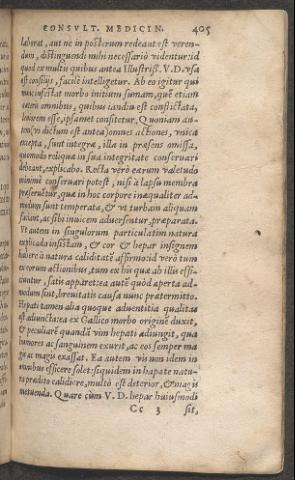 CONSVLT. MEDICIN. 405
laborat, aut ne in posterum redeant est veren-
dum, distinguendi mihi necessariò videntur: id
quod ex multis quibus antea Illustriss. V.D. vsa
est consiliis, facilè intelligetur. Ab eo igitur qui
nunc infestat morbo initium sumam, què etiam
cæteris omnibus, quibus iandiu est conflictata,
leuiorem esse, ipsamet confitetur. Quoniam au-
tem (vt dictum est antea) omnes actiones, vnica
excepta, sunt integræ, illa in præsens omissa,
quomodo reliquæ in sua integritate conseruari
debeant, explicabo. Recta verò earum valetudo
minimè conseruari potest, nisi à lapsu membra
præseruetur, quæ in hoc corpore inæqualiter ad-
modum sunt temperata, & vt turbam aliquam
faciant, ac sibi inuicem aduersentur, præparata.
Vt autem in singulorum particulatim natura
explicada insistam, & cor & hepar insignem
habere à natura caliditatē affirmo: id verò tum
ex eorum actionibus, tum ex his quæ ab illis effi-
ciuntur, satis apparet: ea autē quòd aperta ad-
modum sint, breuitatis causa nunc prætermitto.
Hepati tamen alia quoque aduentitia qualitas
est adiuncta: ea ex Gallico morbo originē duxit,
& peculiarē quandā vim hepati adiungit, qua
humores ac sanguinem exurit, ac eos semper ma
gis ac magis exassat. Ea autem vis non idem in
omnibus efficere solet: siquidem in hepate natu-
ra prædito calidiore, multò est deterior, & magis
metuenda. Quare cùm V. D. hepar huiusmodi
Cc 3 sit,